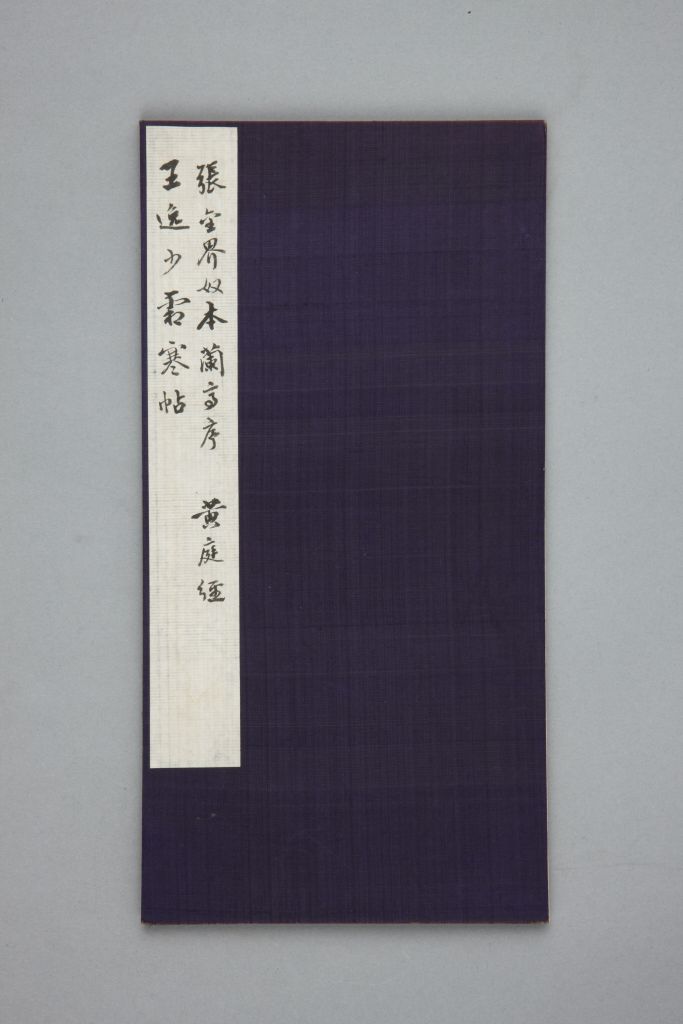 張金界奴本蘭亭序　黃庭經
王逸少霜寒帖